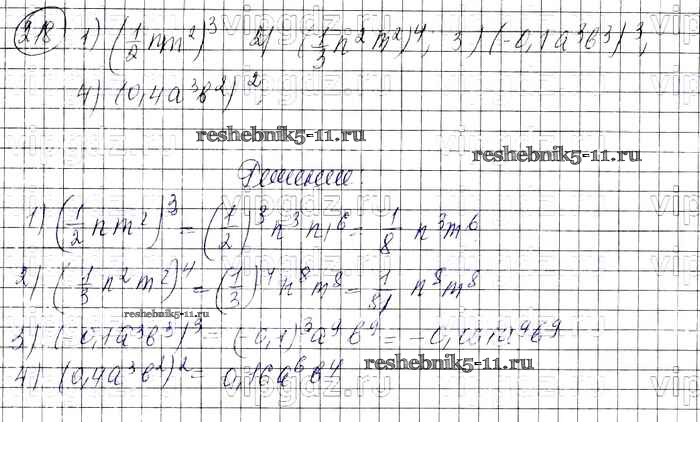 218 1) (1/2 nm²)³ 2) (1/3 n²m²)⁴; 3) (-0,1a³b³)³;
4) (0,4a³b²)²;
reshebnik5-11.ru
reshebnik5-11.ru
Решение:
1) (1/2 nm²)³ = (1/2)³ n³m⁶ = 1/8 n³m⁶
2) (1/3 n²m²)⁴ = (1/3)⁴ n⁸m⁸ = 1/81 n⁸m⁸
reshebnik5-11.ru
3) (-0,1a³b³)³ = (-0,1)³a⁹b⁹ = -0,001a⁹b⁹
reshebnik5-11.ru
4) (0,4a³b²)² = 0,16a⁶b⁴